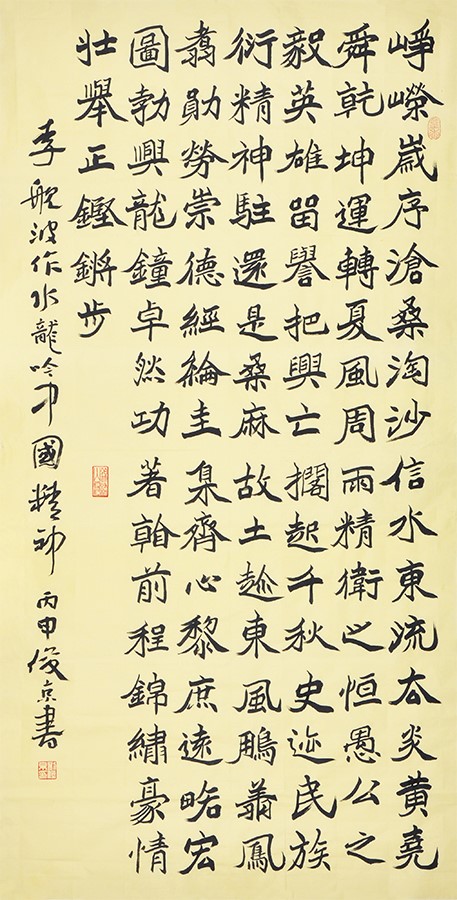 崢嶸嵗序滄桑淘沙信水東流厺炎黄堯
舜乾坤運轉夏風周雨精衛之恒愚公之
毅英雄畱譽把興亡擱起千秋史迹民族
衍精神駐還是桑麻故土趂東風鵬翔鳳
翥勛勞崇德經綸圭集齊心黎庶遠略宏
圖勃興龍鐘卓然功著斡前程錦繡豪情
壯舉正鏗鏘步
李航波作水龍吟中國精神 丙申俊京書